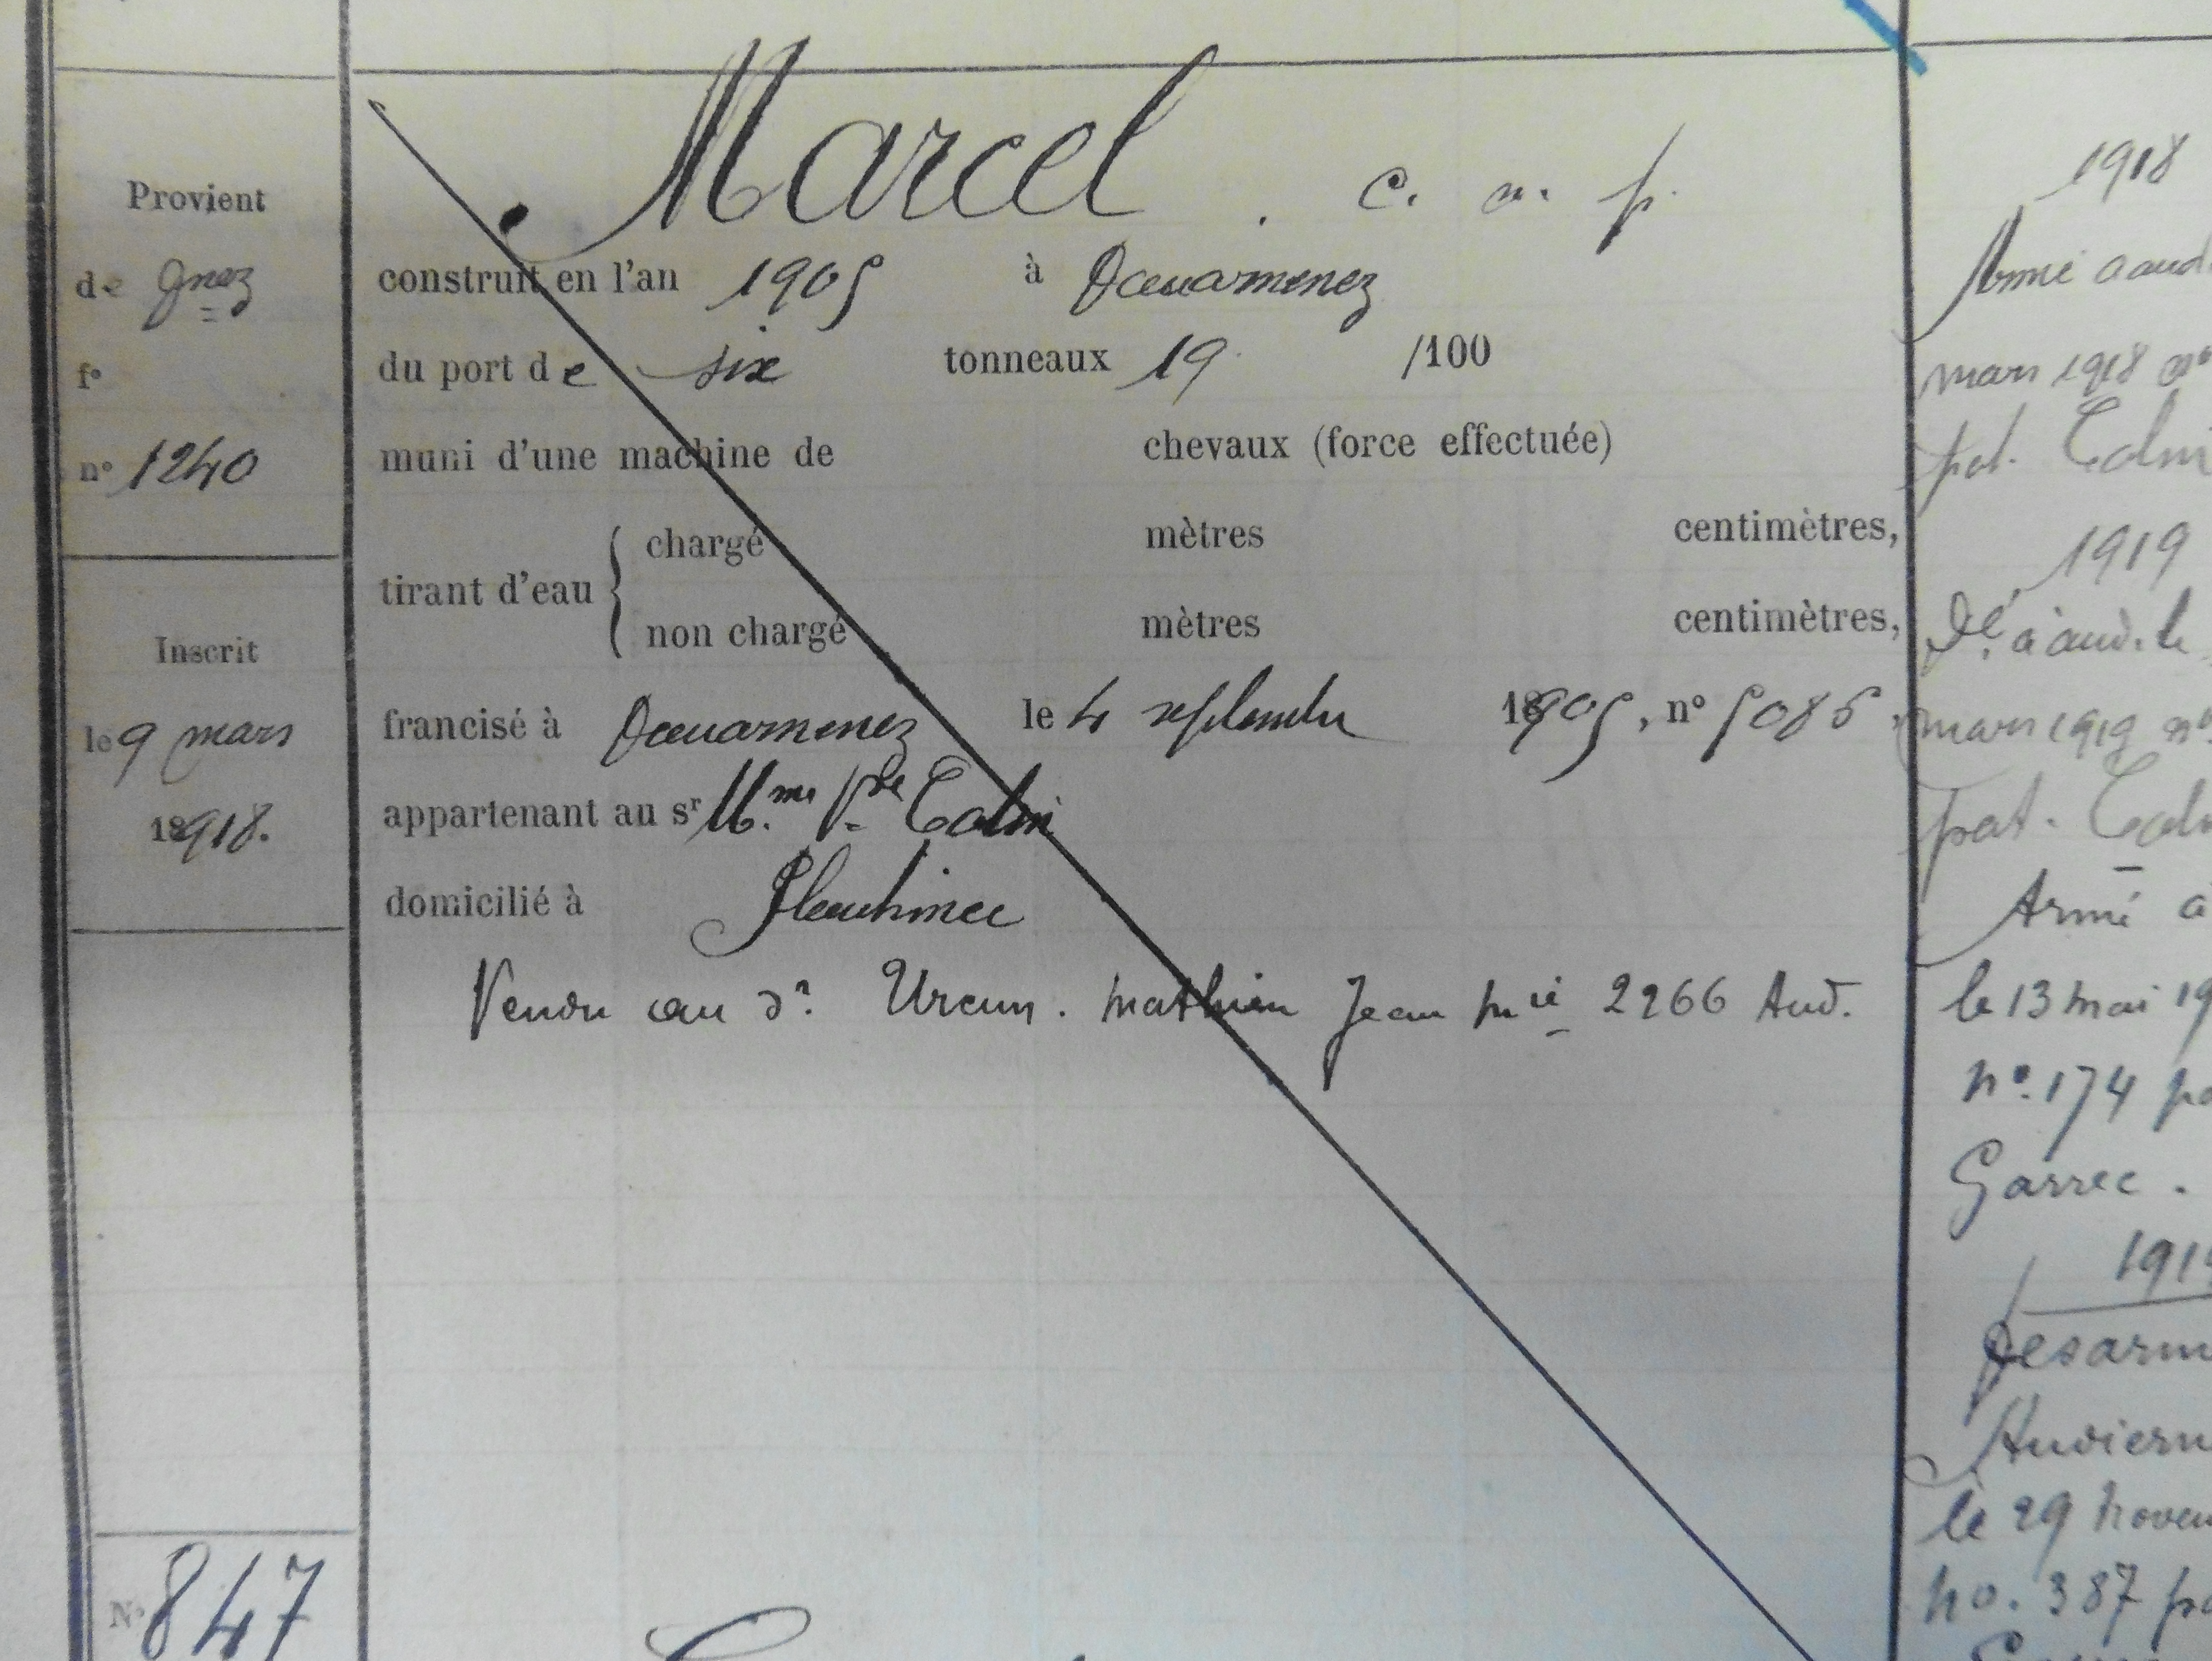 Provient
de Qnez
f°
n° 1240
Inscrit
le 9 mars
1918.
Marcel . c. n. p.
construit en l'an 1905 à Douarnenez
du port de six tonneaux 19 /100
muni d'une machine de chevaux (force effectuée)
tirant d'eau { chargé mètres centimètres,
non chargé mètres centimètres,
francisé à Douarnenez le 4 septembre 1905, n° 5086.
appartenant au sr Mme Vve Colin
domicilié à Plouhinec
Vendu au d? Urcun. Mathieu Jean Mie 2266 Aud.
N° 847
1918
Armé à aud.
mars 1918 n°
pat. Colin
1919
Dé. à aud. le
mars 1919 n°
pat. Colin
Armé à
le 13 mai 19
n°. 174 pa
Garrec.
191
Désarm
Audiern
le 29 novem
no. 387 pa